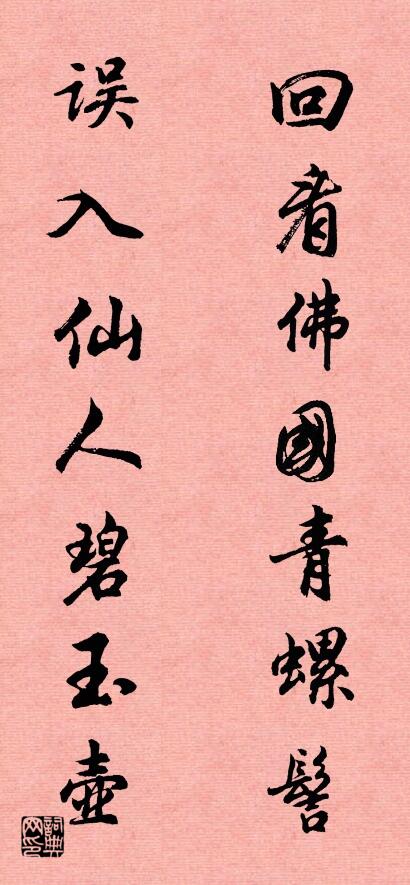 回看佛國青螺髻
误入仙人碧玉壺
詞典网印